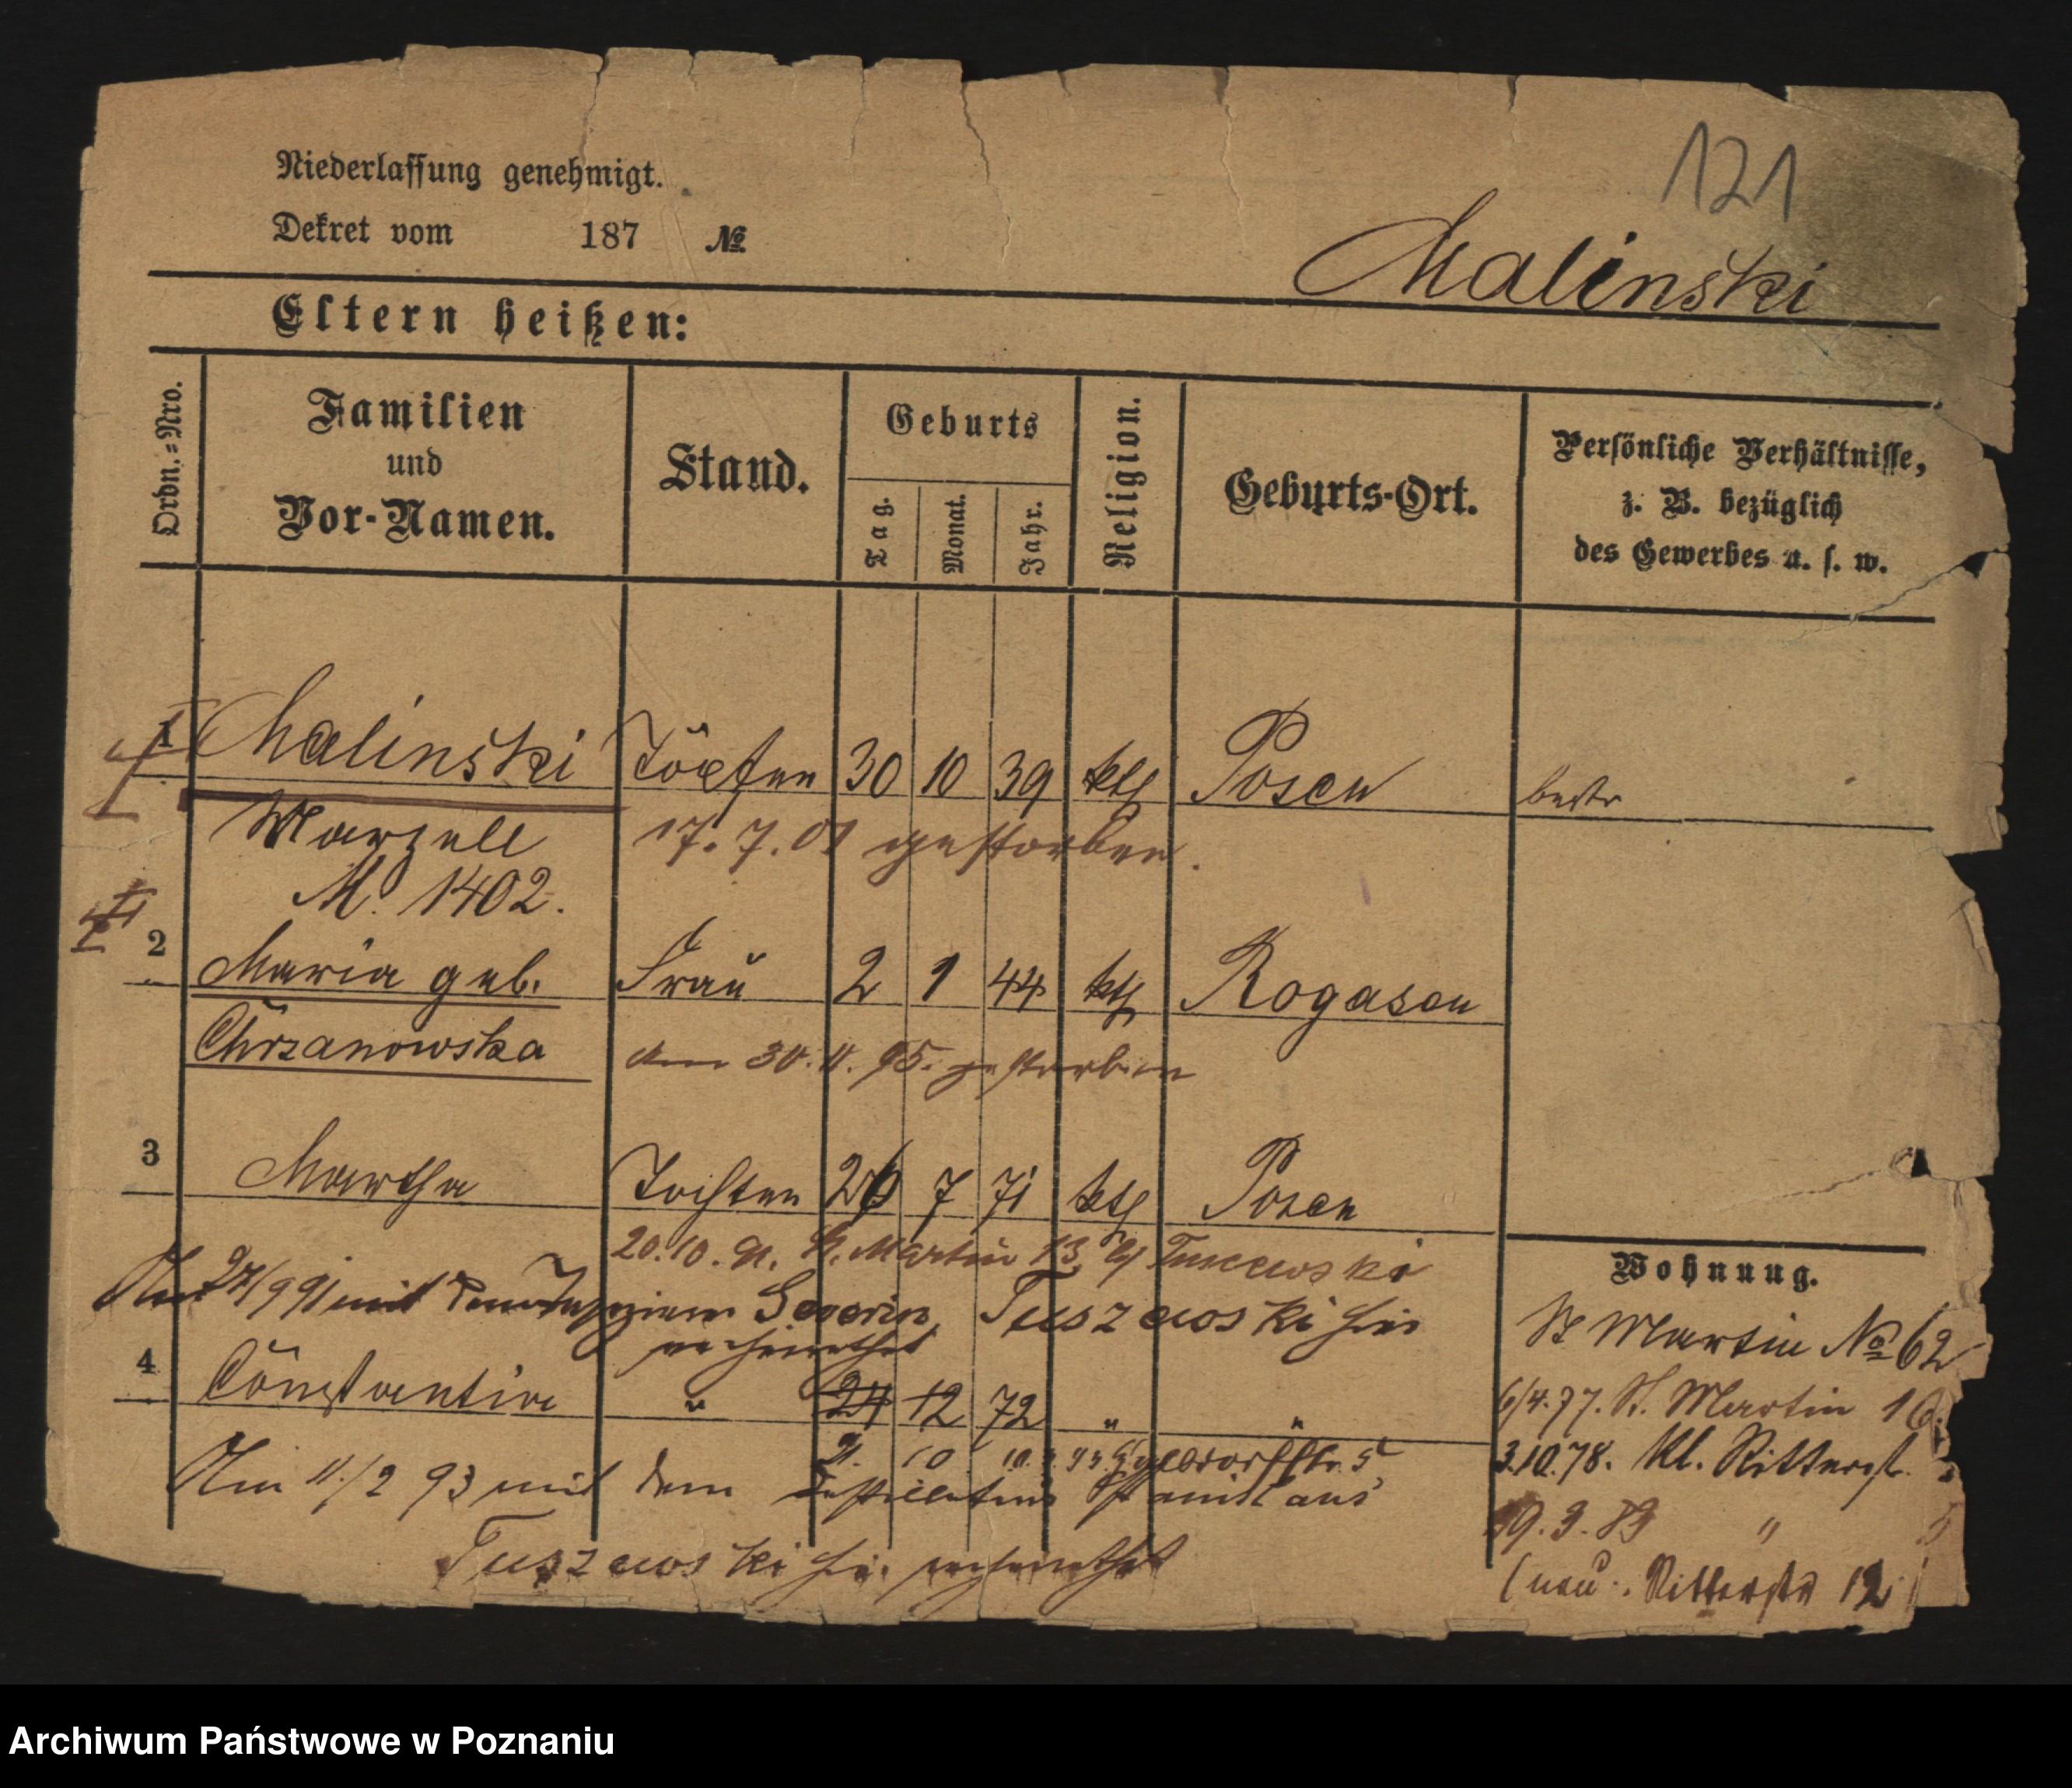 121
Niederlassung genehmigt.
Dekret vom 187 №
Malinski
Eltern heißen:
Ordn.-Nro.
Familien und Vor-Namen.
Stand.
Geburts
Tag.
Monat.
Jahr.
Religion.
Geburts-Ort.
Persönliche Verhältnisse,
z. B. bezüglich
des Gewerbes u. s. w.
1 Malinski Töpfer 30 10 39 kth Posen bestr
Marzell 17. 7. 01 gestorben.
M. 1402.
2 Maria geb. Frau 2 1 44 kth Rogasen
Chrzanowska am 30. 11. 95. gestorben
3 Martha Tochter 26 7 71 kth Posen
20. 10. 91. St. Martin 13 Tuszewski
Am 91 mit dem Severin Tuszewski hier
verheirathet
4 Constantia " 24 12 72 " "
Am 11./2 93 mit dem Destillateur aus
Tuszewski hier verheirathet
Wohnung.
St Martin № 62
6/4. 77. St. Martin 16.
3.10.78. Kl. Ritterst.
19. 9. 89 " 5
(neu: Ritterstr 12)
Archiwum Państwowe w Poznaniu